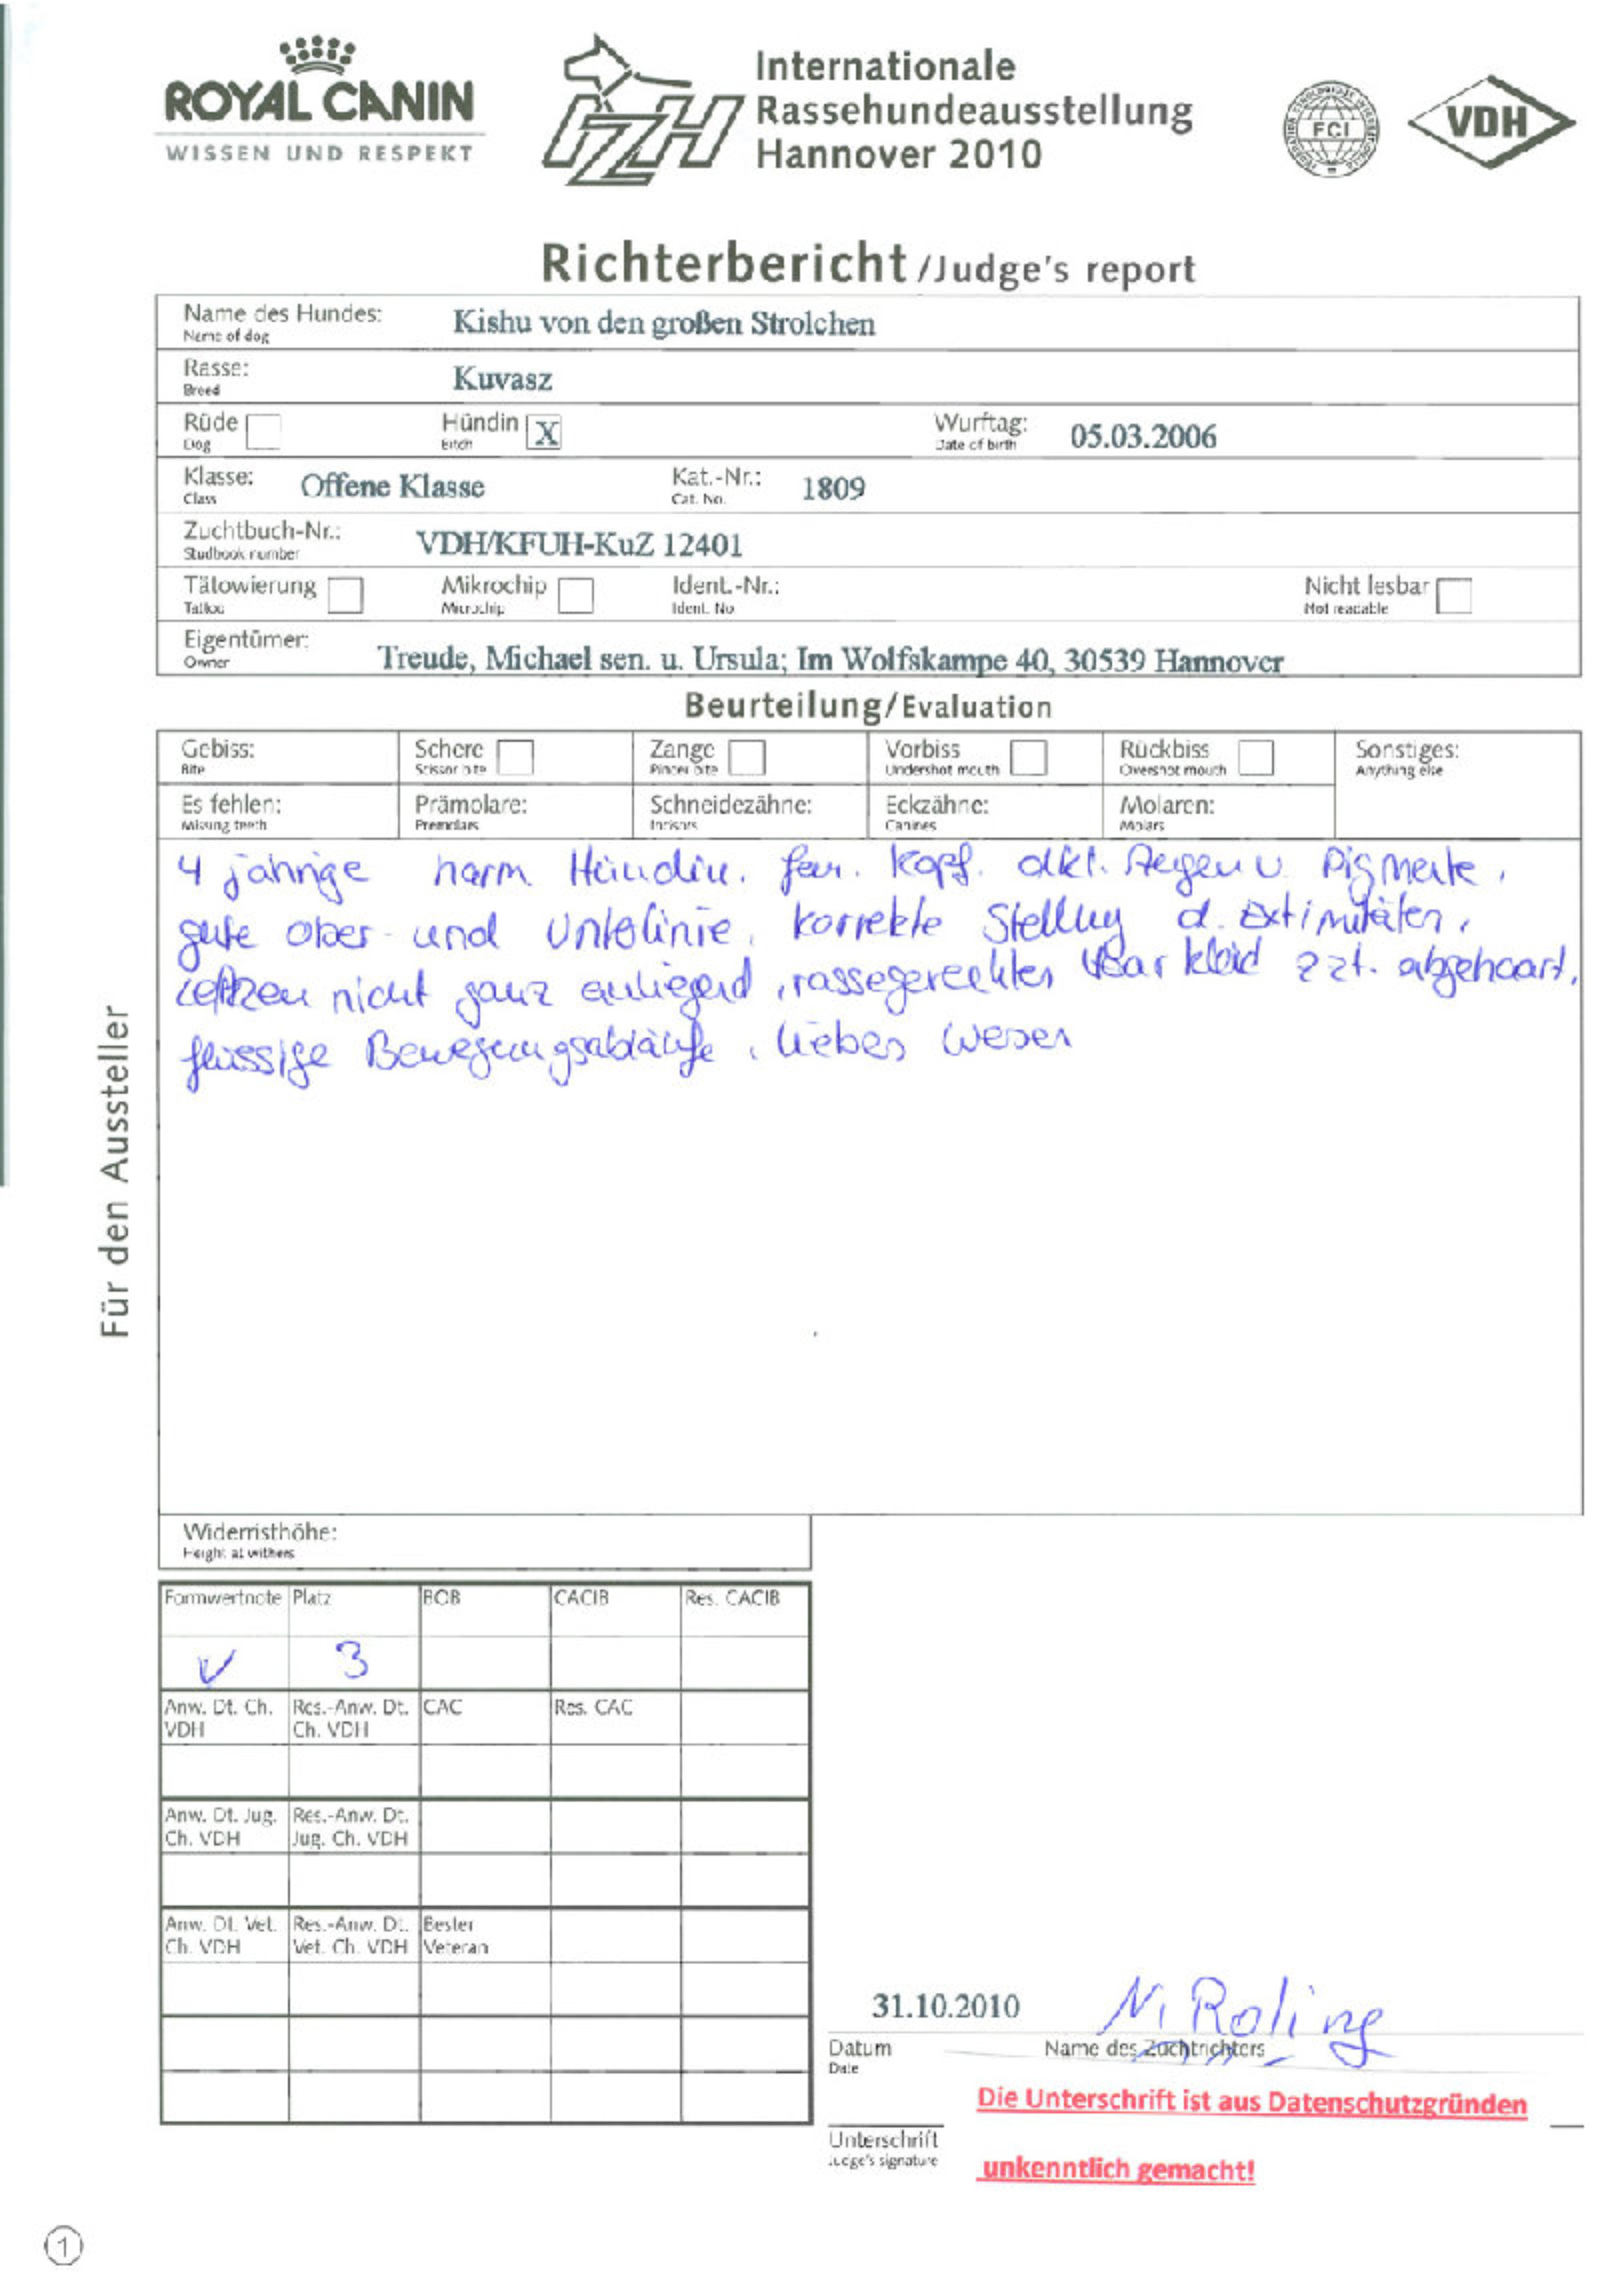 ROYAL CANIN
WISSEN UND RESPEKT
IZH
Internationale
Rassehundeausstellung
Hannover 2010
FCI
VDH
Richterbericht /Judge's report
Name des Hundes: Kishu von den großen Strolchen
Name of dog
Rasse: Kuvasz
Breed
Rüde Hündin X Wurftag: 05.03.2006
Dog Bitch Date of birth
Klasse: Offene Klasse Kat.-Nr.: 1809
Class Cat. No.
Zuchtbuch-Nr.: VDH/KFUH-KuZ 12401
Studbook number
Tätowierung Mikrochip Ident.-Nr.: Nicht lesbar
Tattoo Microchip Ident. No Not readable
Eigentümer: Treude, Michael sen. u. Ursula; Im Wolfskampe 40, 30539 Hannover
Owner
Beurteilung/Evaluation
Gebiss: Schere Zange Vorbiss Rückbiss Sonstiges:
Bite Scissor bite Pincer bite Undershot mouth Overshot mouth Anything else
Es fehlen: Prämolare: Schneidezähne: Eckzähne: Molaren:
Missing teeth Premolars Incisors Canines Molars
4 jährige harm. Hündin. fem. Kopf. dkl. Augen u. Pigmente,
gute Ober- und Unterlinie, korrekte Stellung d. Extimitäten,
Lefzen nicht ganz anliegend, rassegerechtes Haarkleid zzt. abgehaart,
fluessige Bewegungsabläufe, liebes Wesen
Für den Aussteller
Widerristhöhe:
Height at withers
Formwertnote Platz BOB CACIB Res. CACIB
V 3
Anw. Dt. Ch. Res.-Anw. Dt. CAC Res. CAC
VDH Ch. VDH
Anw. Dt. Jug. Res.-Anw. Dt.
Ch. VDH Jug. Ch. VDH
Anw. Dt. Vet. Res.-Anw. Dt. Bester
Ch. VDH Vet. Ch. VDH Veteran
31.10.2010 N. Roling
Datum Name des Zuchtrichters
Date
Die Unterschrift ist aus Datenschutzgründen
Unterschrift
Judge's signature
unkenntlich gemacht!
1